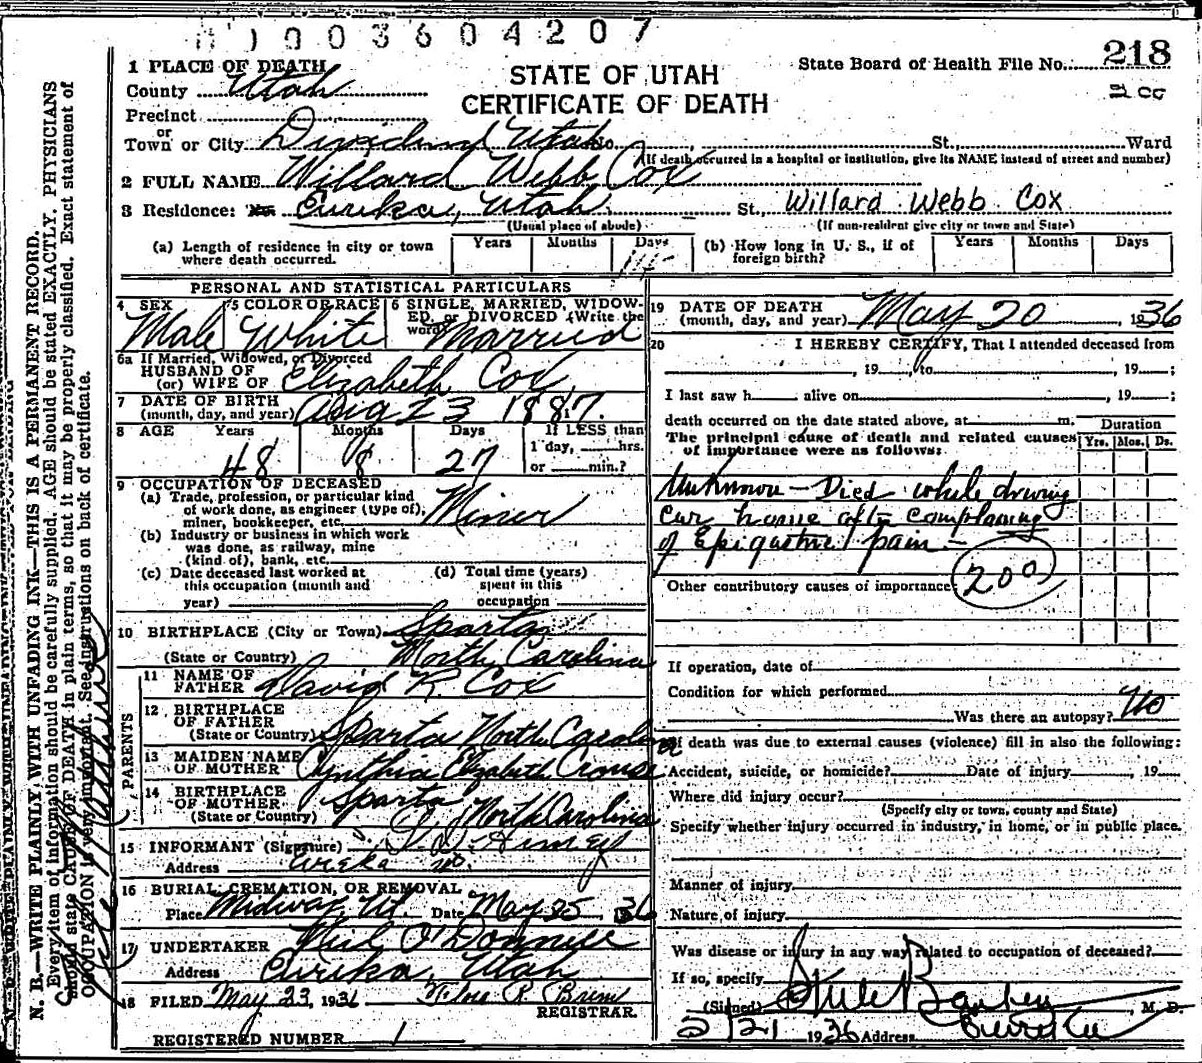 0003604207
1 PLACE OF DEATH
County Utah
STATE OF UTAH
CERTIFICATE OF DEATH
State Board of Health File No. 218
Precinct
or
Town or City Dividend Utah St., Ward
(If death occurred in a hospital or institution, give its NAME instead of street and number)
2 FULL NAME Willard Webb Cox
3 Residence: No. Eureka, Utah St., Willard Webb Cox
(Usual place of abode) (If non-resident give city or town and State)
(a) Length of residence in city or town where death occurred. Years Months Days
(b) How long in U. S., if of foreign birth? Years Months Days
PERSONAL AND STATISTICAL PARTICULARS
4 SEX Male
5 COLOR OR RACE White
6 SINGLE, MARRIED, WIDOWED, or DIVORCED (Write the word) Married
6a If Married, Widowed, or Divorced
HUSBAND OF
(or) WIFE OF Elizabeth Cox
7 DATE OF BIRTH
(month, day, and year) Aug 23 1887.
8 AGE Years Months Days If LESS than
48 8 27 1 day, hrs.
or min.?
9 OCCUPATION OF DECEASED
(a) Trade, profession, or particular kind
of work done, as engineer (type of),
miner, bookkeeper, etc. Miner
(b) Industry or business in which work
was done, as railway, mine
(kind of), bank, etc.
(c) Date deceased last worked at
this occupation (month and
year)
(d) Total time (years)
spent in this
occupation
10 BIRTHPLACE (City or Town) Sparta
(State or Country) North Carolina
PARENTS
11 NAME OF
FATHER David R. Cox
12 BIRTHPLACE
OF FATHER
(State or Country) Sparta North Carolina
13 MAIDEN NAME
OF MOTHER Cynthia Elizabeth Crouse
14 BIRTHPLACE
OF MOTHER Sparta
(State or Country) North Carolina
15 INFORMANT (Signature)
Address Eureka
16 BURIAL, CREMATION, OR REMOVAL
Place Midway, Ut. Date May 25 1936
17 UNDERTAKER Neil O'Donnell
Address Eureka, Utah
18 FILED May 23, 1936
REGISTRAR.
REGISTERED NUMBER 1
19 DATE OF DEATH
(month, day, and year) May 20 1936
20 I HEREBY CERTIFY, That I attended deceased from
, 19 , to , 19 ;
I last saw h alive on , 19 ;
death occurred on the date stated above, at m.
The principal cause of death and related causes
of importance were as follows:
Duration
Yrs. Mos. Ds.
Unknown - Died while driving
car home after complaining
of Epigastric pain -
Other contributory causes of importance 200
If operation, date of
Condition for which performed
Was there an autopsy? no
If death was due to external causes (violence) fill in also the following:
Accident, suicide, or homicide? Date of injury , 19
Where did injury occur?
(Specify city or town, county and State)
Specify whether injury occurred in industry, in home, or in public place.
Manner of injury
Nature of injury
Was disease or injury in any way related to occupation of deceased?
If so, specify
(Signed) M. D.
5/21 1936 Address Eureka
N. B.—WRITE PLAINLY WITH UNFADING INK—THIS IS A PERMANENT RECORD.
Every item of information should be carefully supplied. AGE should be stated EXACTLY. PHYSICIANS
should state CAUSE OF DEATH in plain terms, so that it may be properly classified. Exact statement of
OCCUPATION is very important. See instructions on back of certificate.